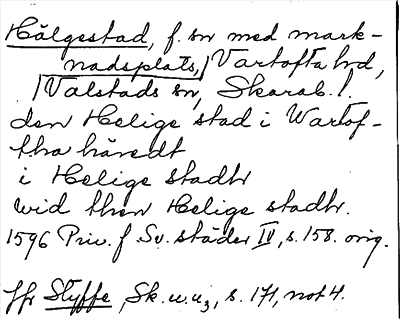 Hälgestad, f. sn med mark-
nadsplats, / Vartofta hd,
/ Valstads sn, Skarab. l.
den Helige stad i Wartof-
tha häredt
i Helige stadh
wid then Helige stadh.
1596 Priv. f Sv. städer IV, s. 158. orig.
Jfr Styffe, Sk. u. u3, s. 171, not 4.